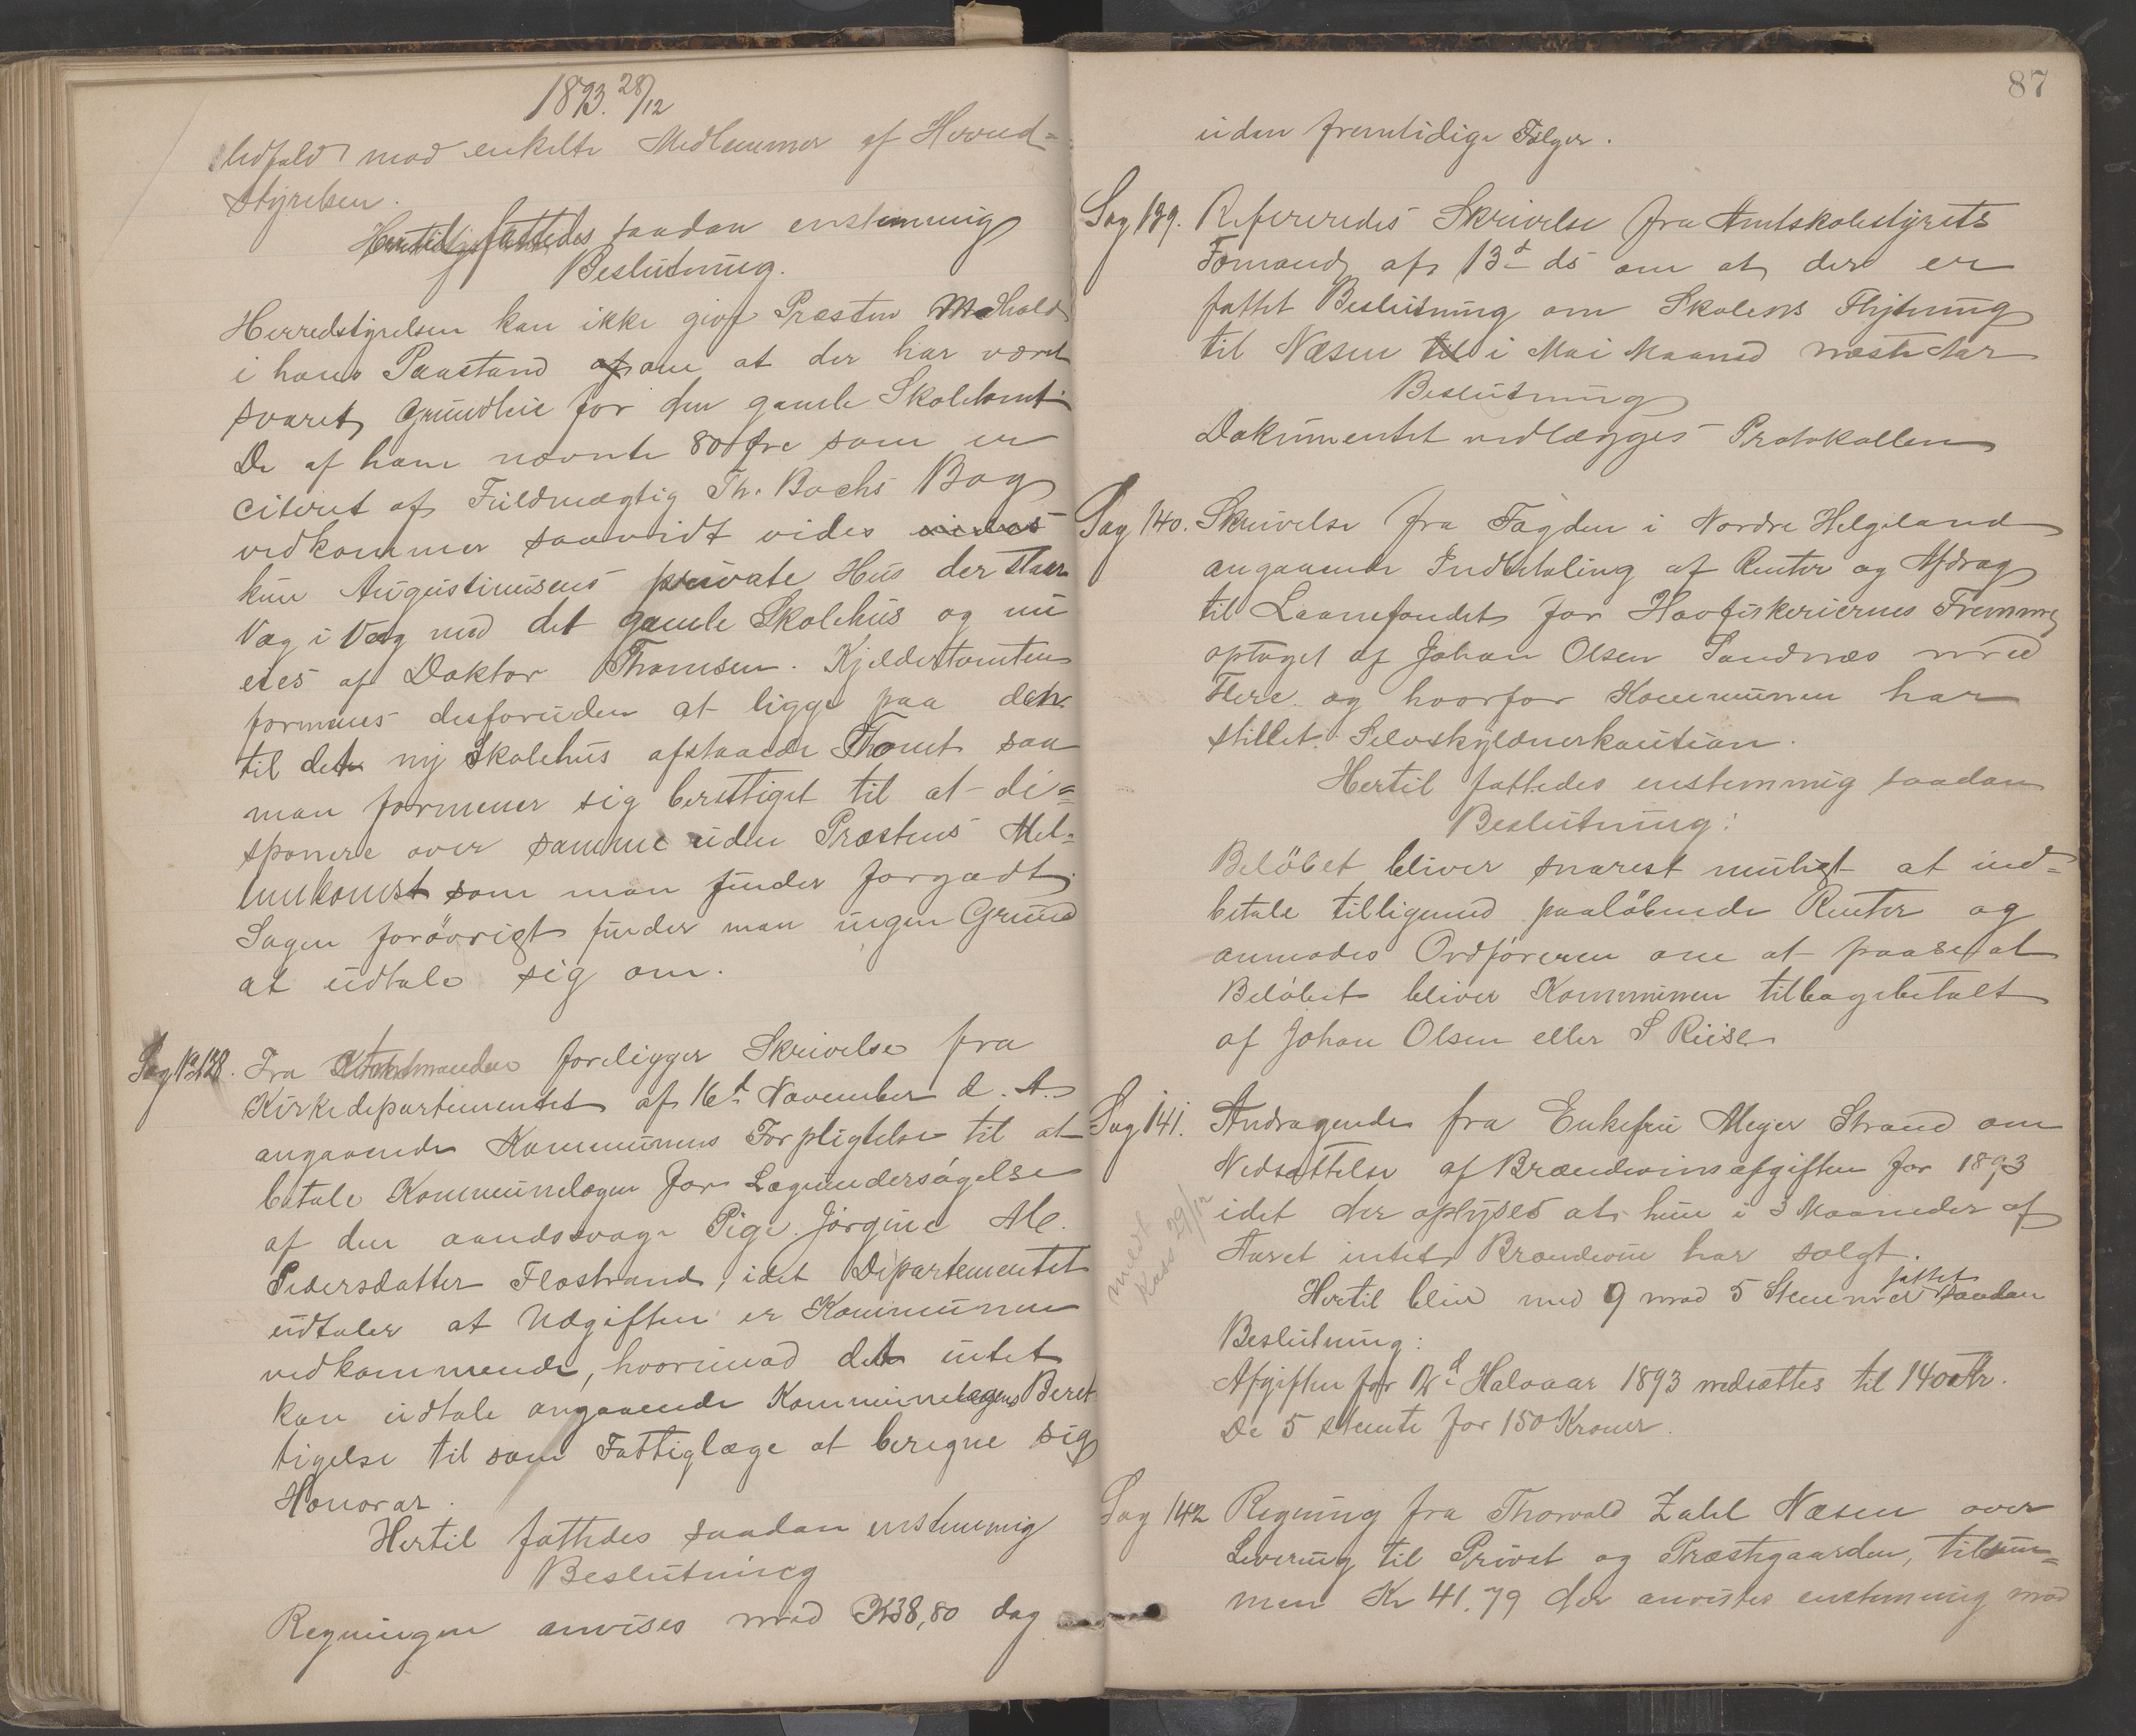 1893. 28/12
Udfald mod enkelte Medlemmer af Herred-
styrelsen.
Hertil fattedes saadan enstemmig
Beslutning.
Herredstyrelsen kan ikke give Præsten Medhold
i hans Paastand af om at der har været
svaret Grundleie for den gamle Skoletomt
De af ham nævnte 80 Øre som er
citeret af Fuldmægtig Th. Bachs Bog
vedkommer saavidt vides vides
kun Augustinusens private Hus der staar
Væg i Væg med det gamle Skolehus og nu
eies af Doktor Thomsen. Kjeldertomten
formenes desforuden at ligge paa den
til det ny Skolehus afstaaede Tomt saa
man formener sig berettiget til at di-
sponere over samme uden Præstens Mel-
lemkomst som man finder forgodt.
Sagen forøvrigt finder man ingen Grund
at udtale sig om.
Sag No 138. Fra foreligger Skrivelse fra
Kirkedepartementet af 16d November d. A.
angaaende Kommunens Forpligtelse til at
betale Kommunelægen for Lægeundersøgelse
af den aandssvage Pige Jørgine M.
Pedersdatter Flostrand, idet Departementet
udtaler at Udgiften er Kommunen
vedkommende, hvorimod det intet
kan udtale angaaende Kommunelægens Beret-
tigelse til som Fattiglæge at beregne sig
Honorar.
Hertil fattedes saadan enstemmig
Beslutning
Regningen anvises med Kr 38,80 dog
87
uden fremtidige Følger.
Sag 139. Refereredes Skrivelse fra Amtskolestyrets
Formand af 13d ds om at der er
fattet Beslutning om Skolens Flytning
til Næsen til i Mai Maaned næste Aar
Beslutning
Dokumentet vedlægges Protokollen
Sag 140. Skrivelse fra Fogden i Nordre Helgeland
angaaende Indbetaling af Renter og Afdrag
til Laanefondet for Havfiskeriernes Fremme
optaget af Johan Olsen Sandnæs med
Flere og hvorfor Kommunen har
stillet Selvskyldnerkaution.
Hertil fattedes enstemmig saadan
Beslutning:
Beløbet bliver snarest muligt at ind-
betale tilligemed paaløbende Renter og
anmodes Ordføreren om at paase at
Beløbet bliver Kommunen tilbagebetalt
af Johan Olsen eller S Riise
Sag 141. Andragende fra Enkefru Meyer Strand om
Nedsættelse af Brændevinsafgiften for 1893
idet der oplyses at hun i 3 Maaneder af
Aaret intet Brændevin har solgt.
Hertil blev med 9 mod 5 Stemmer fattet saadan
Beslutning:
Afgiften for Halvaar 1893 nedsættes til 140 Kr.
De 5 stemte for 150 Kroner.
Sag 142 Regning fra Thorvald Zahl Næsen over
Levering til Privat og Præstegaarden, tilsam-
men Kr 41.79 der anvistes enstemmig med